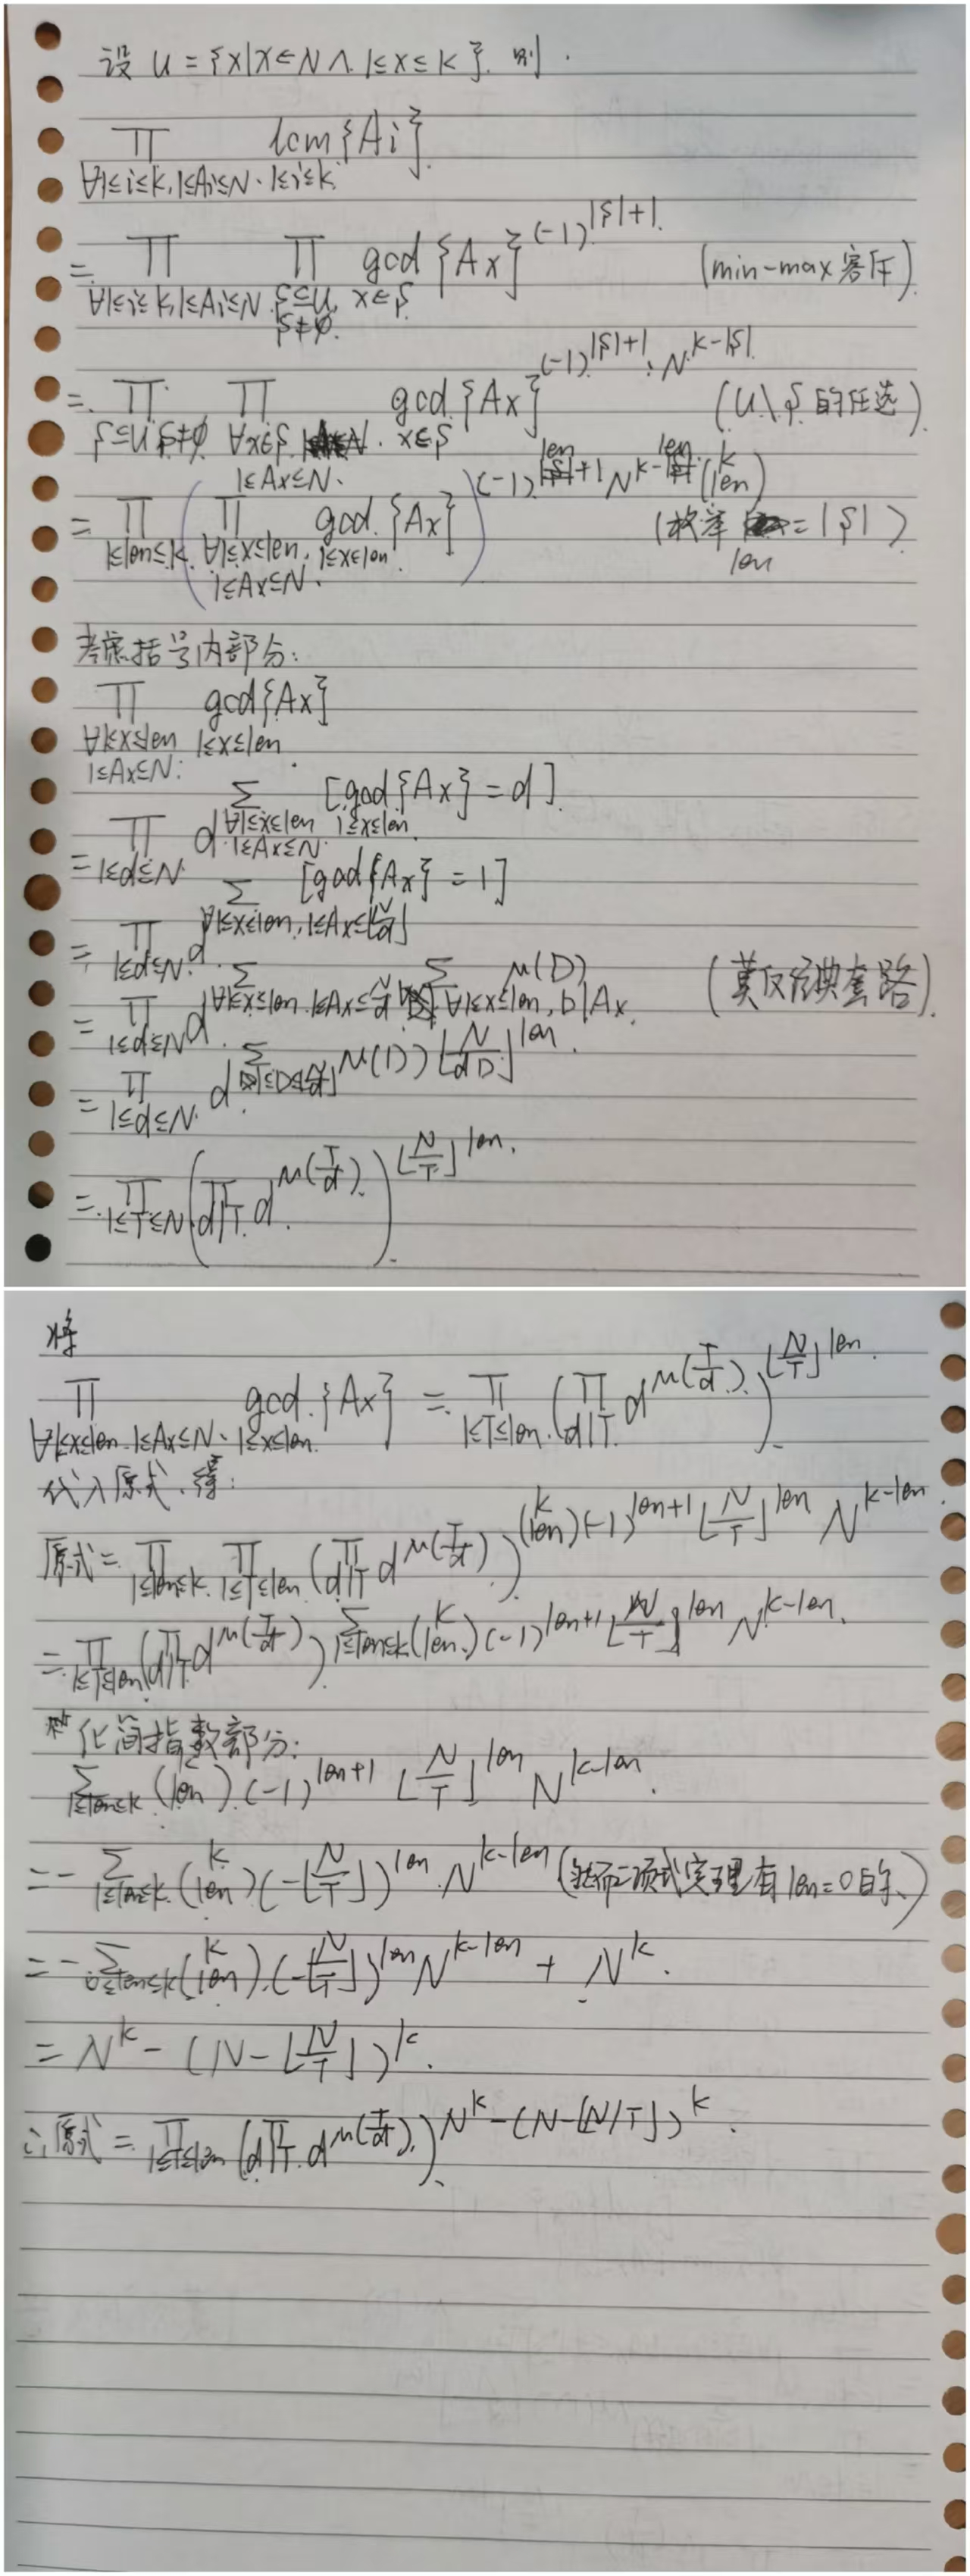 设 U = {x|x∈N ∧ 1≤x≤k}. 则
∏_{∀1≤i≤k, 1≤Ai≤N} lcm_{1≤i≤k}{Ai}
= ∏_{∀1≤i≤k, 1≤Ai≤N} ∏_{S⊆U, S≠∅} gcd_{x∈S}{Ax}^{(-1)^{|S|+1}} (min-max容斥)
= ∏_{S⊆U, S≠∅} ∏_{∀x∈S, 1≤Ax≤N} gcd_{x∈S}{Ax}^{(-1)^{|S|+1}·N^{k-|S|}} (U\S的任选)
= ∏_{1≤len≤k} (∏_{∀1≤x≤len, 1≤Ax≤N} gcd_{1≤x≤len}{Ax})^{(-1)^{len+1} N^{k-len} (k len)} (枚举 len = |S|)
考虑括号内部分:
∏_{∀1≤x≤len, 1≤Ax≤N} gcd_{1≤x≤len}{Ax}
= ∏_{1≤d≤N} d^{∑_{∀1≤x≤len, 1≤Ax≤N} [gcd_{1≤x≤len}{Ax} = d]}
= ∏_{1≤d≤N} d^{∑_{∀1≤x≤len, 1≤Ax≤⌊N/d⌋} [gcd{Ax} = 1]}
= ∏_{1≤d≤N} d^{∑_{∀1≤x≤len, 1≤Ax≤N/d} ∑_{∀1≤x≤len, D|Ax} μ(D)} (莫反经典套路)
= ∏_{1≤d≤N} d^{∑ μ(D) ⌊N/dD⌋^{len}}
= ∏_{1≤T≤N} (∏_{d|T} d^{μ(T/d)})^{⌊N/T⌋^{len}}
将
∏_{∀1≤x≤len, 1≤Ax≤N} gcd_{1≤x≤len}{Ax} = ∏_{1≤T≤len} (∏_{d|T} d^{μ(T/d)})^{⌊N/T⌋^{len}}
代入原式, 得:
原式 = ∏_{1≤len≤k} ∏_{1≤T≤len} (∏_{d|T} d^{μ(T/d)})^{(k len)(-1)^{len+1} ⌊N/T⌋^{len} N^{k-len}}
= ∏_{1≤T≤len} (∏_{d|T} d^{μ(T/d)})^{∑_{1≤len≤k} (k len)(-1)^{len+1} ⌊N/T⌋^{len} N^{k-len}}
化简指数部分:
∑_{1≤len≤k} (k len)(-1)^{len+1} ⌊N/T⌋^{len} N^{k-len}
= -∑_{1≤len≤k} (k len)(-⌊N/T⌋)^{len} N^{k-len} (然而二项式定理有len=0的.)
= -∑_{0≤len≤k} (k len)(-⌊N/T⌋)^{len} N^{k-len} + N^k
= N^k - (N-⌊N/T⌋)^k
∴原式 = ∏_{1≤T≤len} (∏_{d|T} d^{μ(T/d)})^{N^k-(N-⌊N/T⌋)^k}